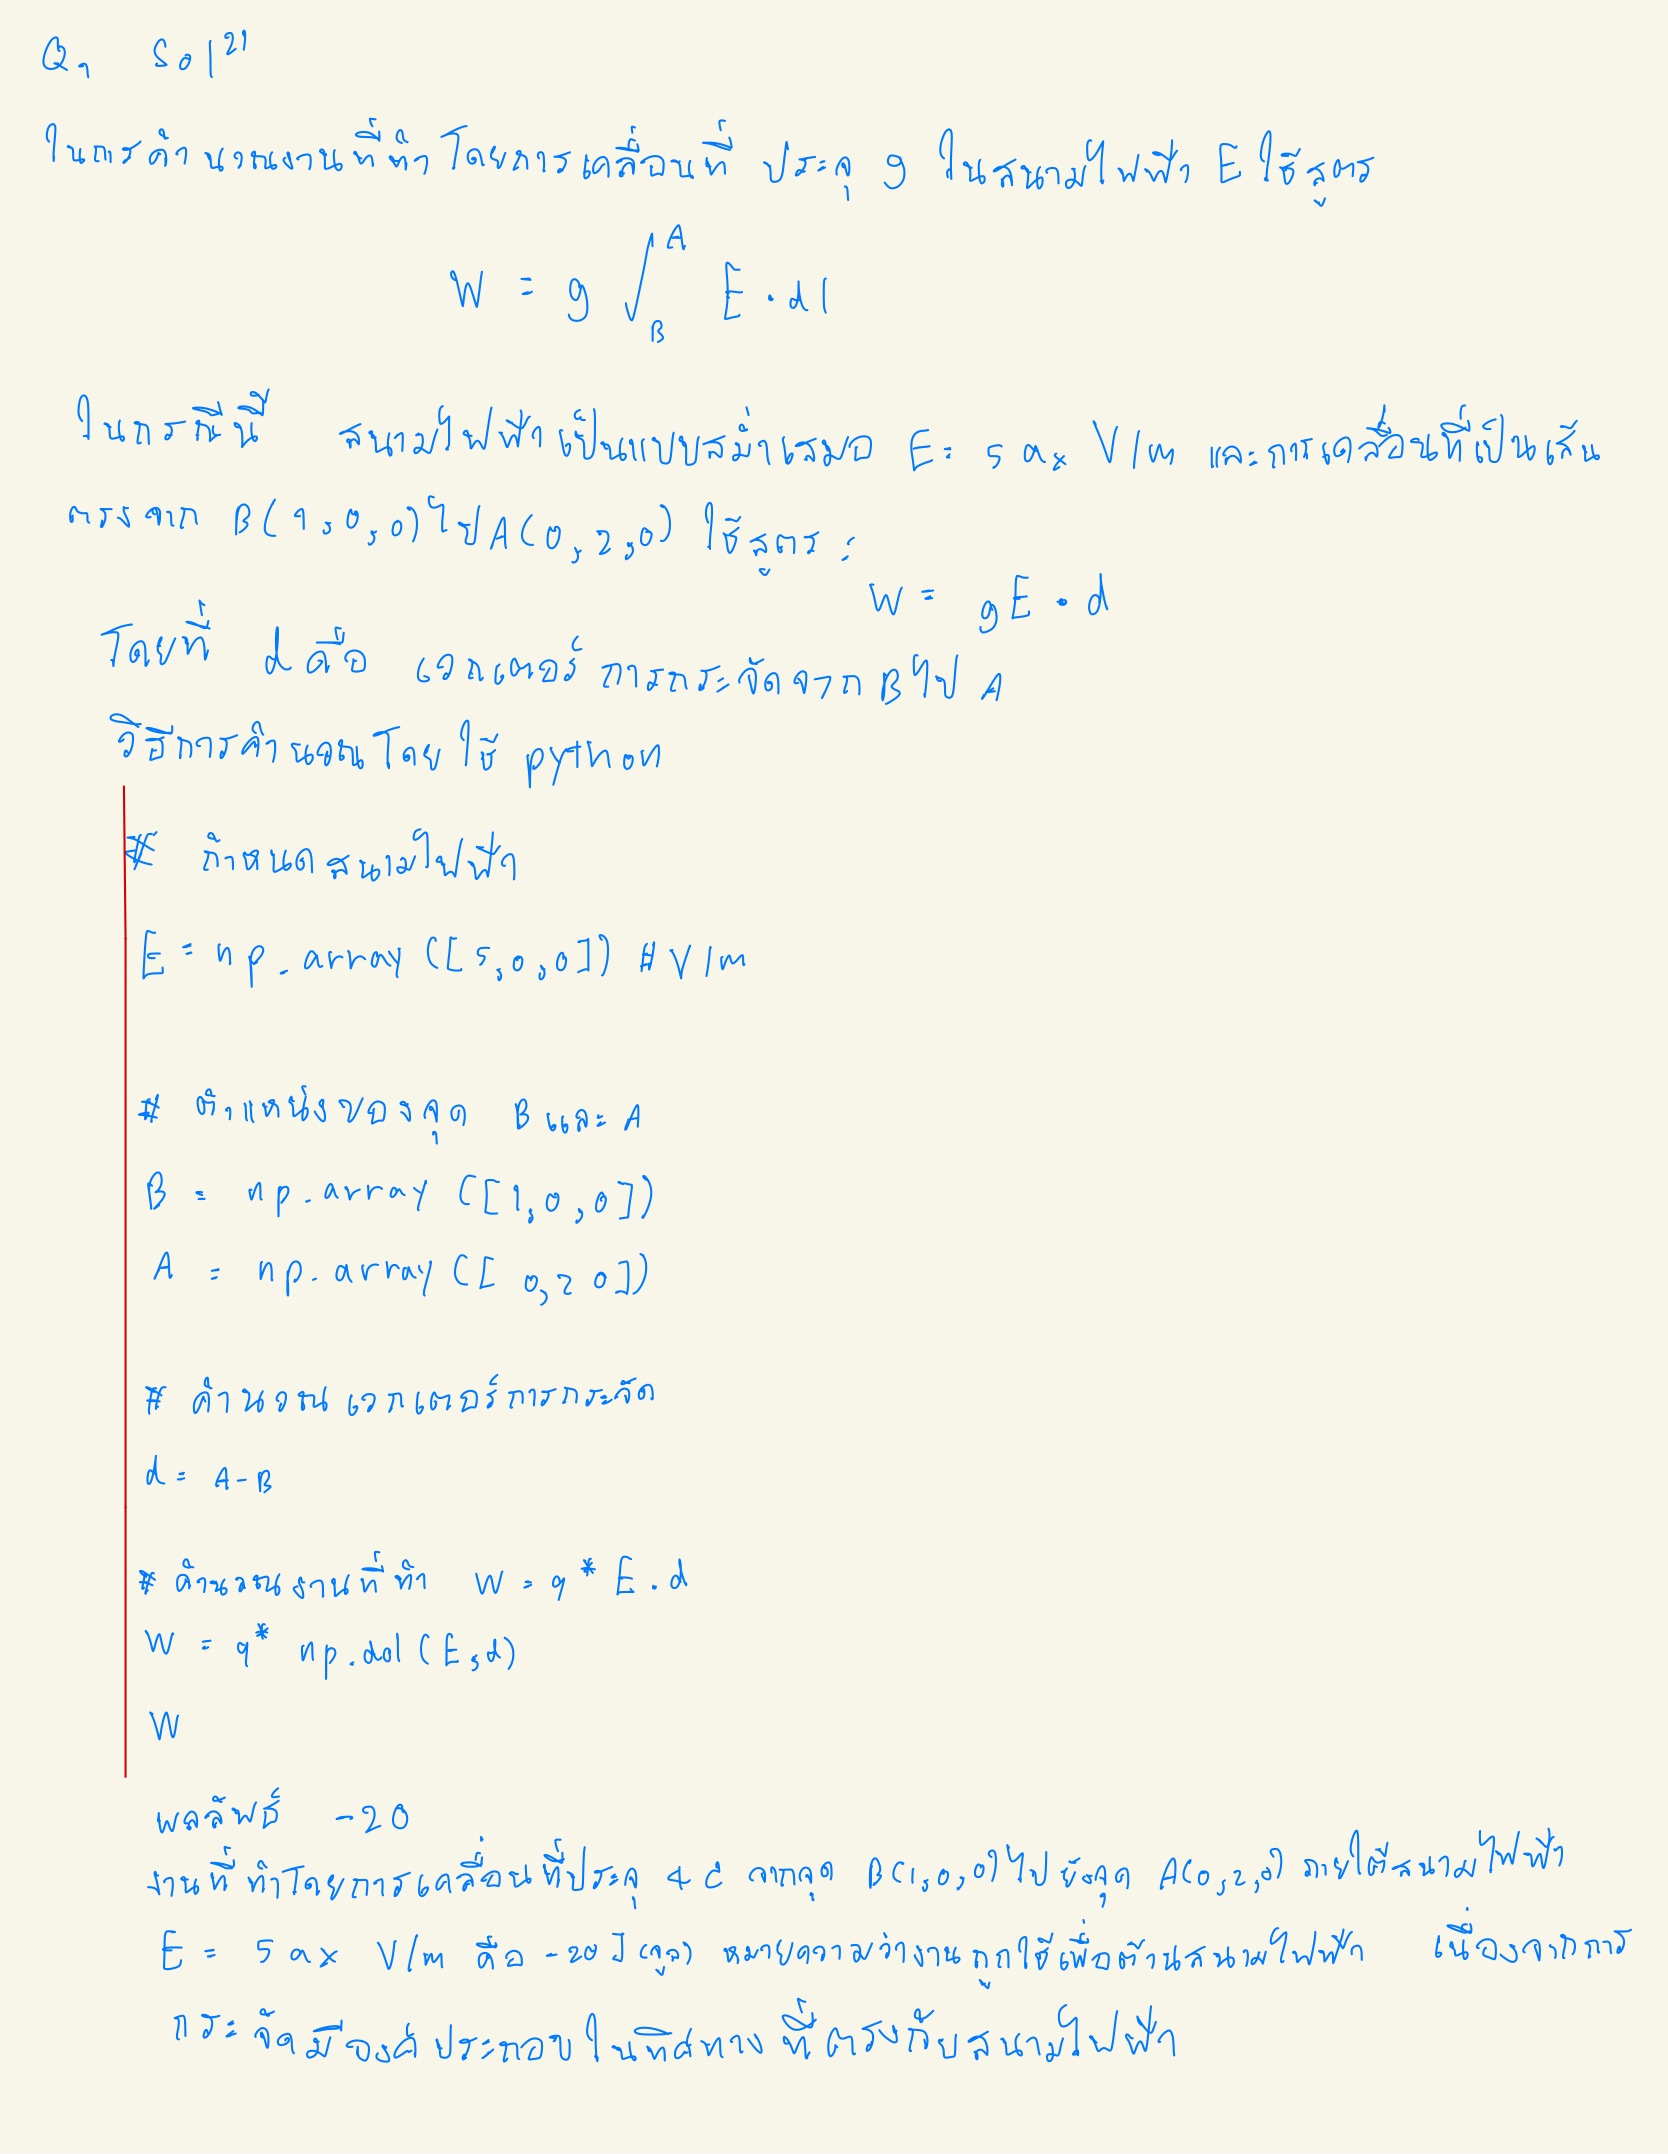 Q1 Sol21
ในการคำนวณงานที่ทำ โดยการเคลื่อนที่ ประจุ q ในสนามไฟฟ้า E ใช้สูตร
W = q ∫_B^A E · dl
ในกรณีนี้ สนามไฟฟ้าเป็นแบบสม่ำเสมอ E = 5 ax V/m และการเคลื่อนที่เป็นเส้น
ตรงจาก B(1,0,0) ไป A(0,2,0) ใช้สูตร :
W = qE · d
โดยที่ d คือ เวกเตอร์ การกระจัดจาก B ไป A
วิธีการคำนวณโดย ใช้ python
# กำหนดสนามไฟฟ้า
E = np.array([5,0,0]) #V/m
# ตำแหน่งของจุด B และ A
B = np.array([1,0,0])
A = np.array([0,2 0])
# คำนวณ เวกเตอร์การกระจัด
d = A-B
# คำนวณงานที่ ทำ W = q* E.d
W = q* np.dot(E,d)
W
ผลลัพธ์ -20
งานที่ ทำโดยการเคลื่อนที่ประจุ 4 C จากจุด B(1,0,0) ไป ยังจุด A(0,2,0) ภายใต้สนามไฟฟ้า
E = 5 ax V/m คือ -20 J (จูล) หมายความว่างานถูกใช้เพื่อต้านสนามไฟฟ้า เนื่องจากการ
กระจัดมีองค์ประกอบในทิศทาง ที่ตรงกับสนามไฟฟ้า